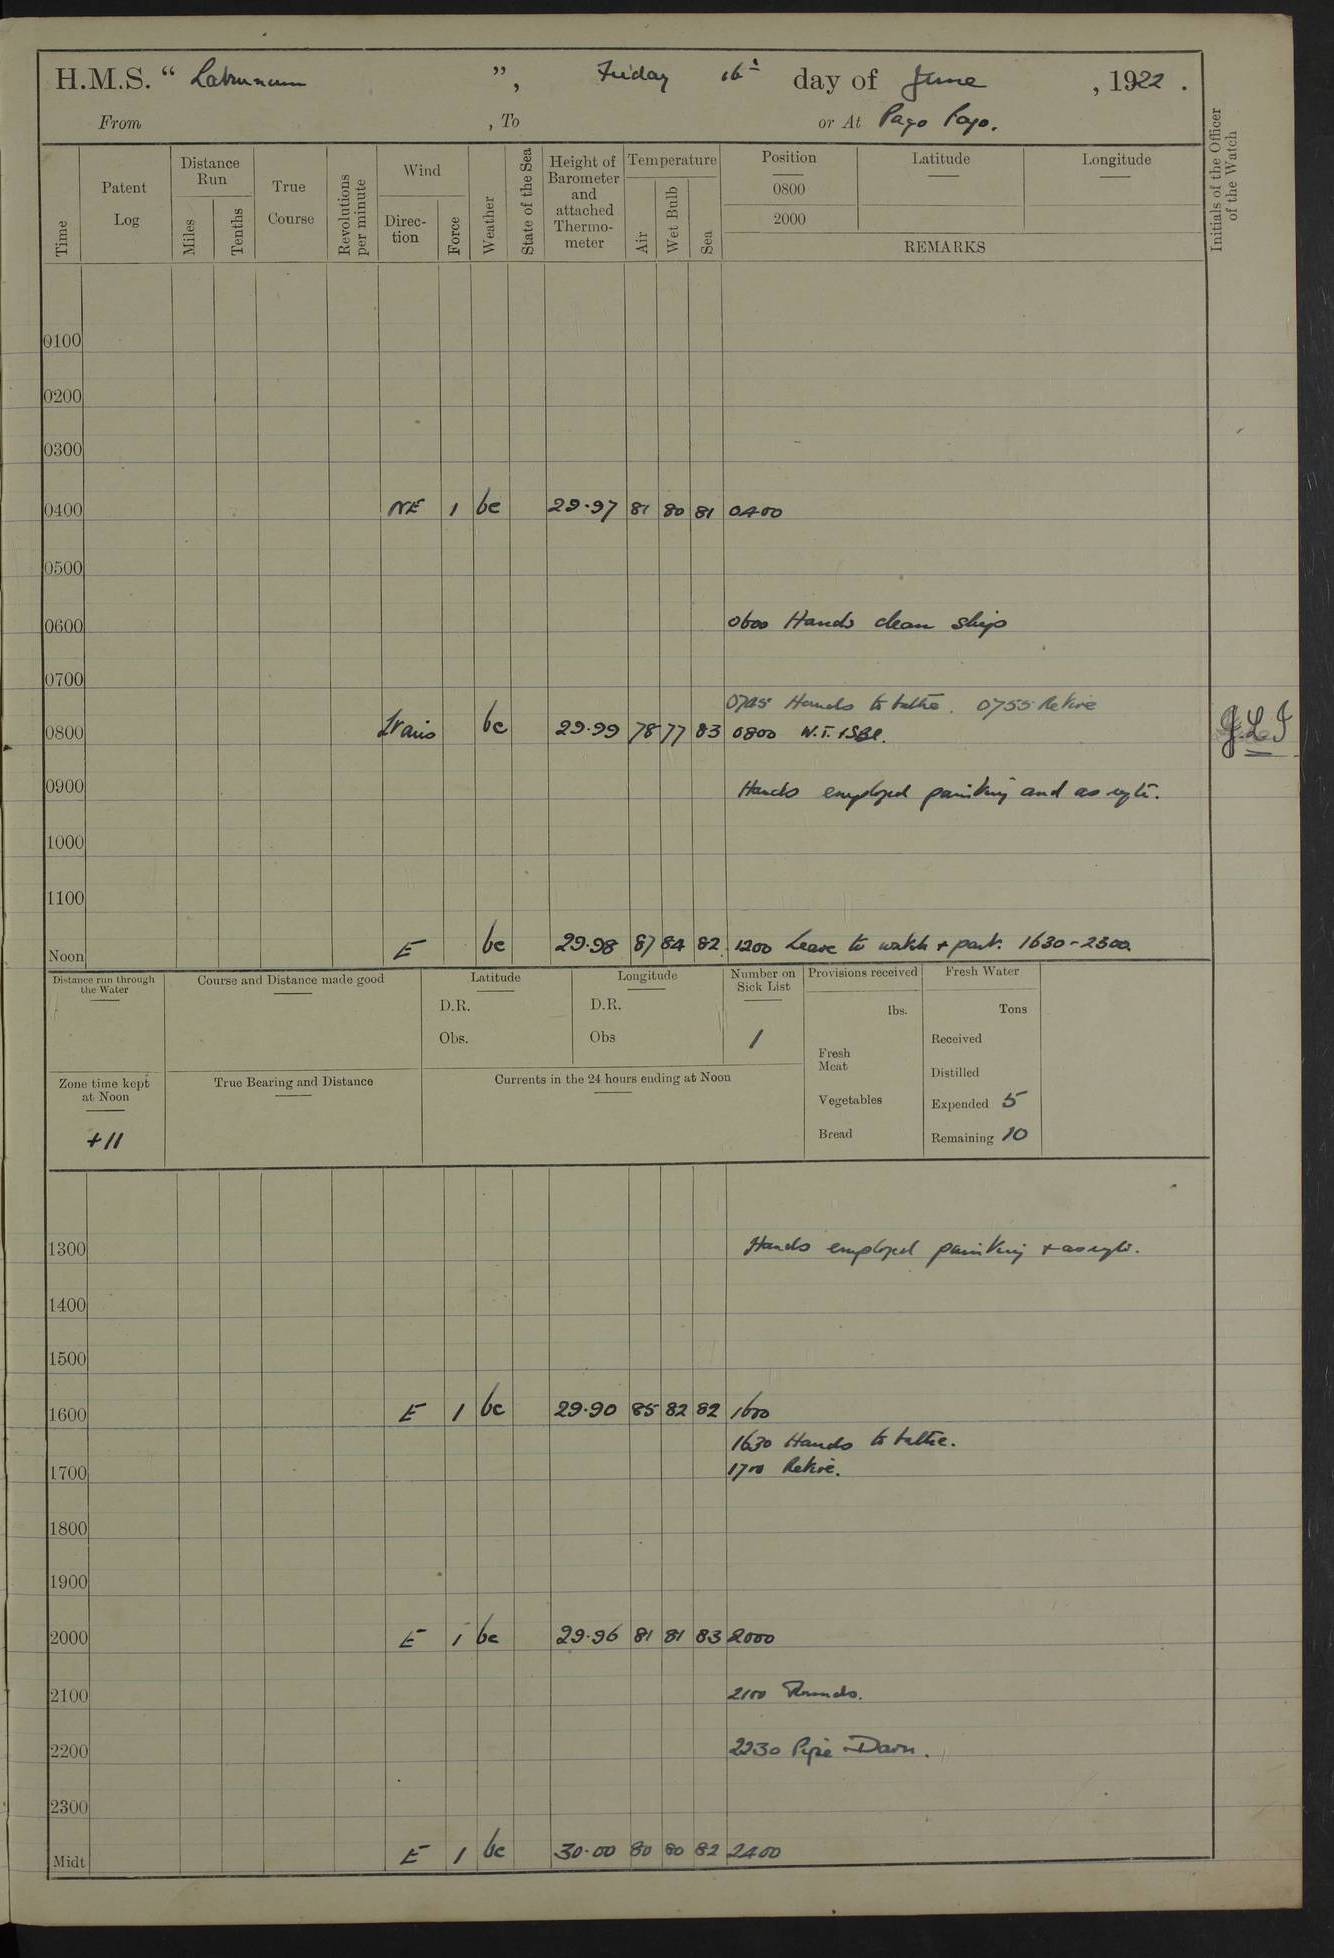 H.M.S. “ Laburnum ”, Friday 16th day of June , 1922 .
From , To or At Pago Pago.
Time
Patent Log
Distance Run
Miles
Tenths
True Course
Revolutions per minute
Wind
Direc-tion
Force
Weather
State of the Sea
Height of Barometer and attached Thermo-meter
Temperature
Air
Wet Bulb
Sea
Position
0800
2000
Latitude
Longitude
REMARKS
Initials of the Officer of the Watch
0100
0200
0300
0400 NE 1 bc 29.97 81 80 81 0400
0500
0600 0600 Hands clean ship
0700
0745 Hands to bathe. 0755 Retire
0800 bc 29.99 78 77 83 0800
0900 Hands employed painting and as reqte.
1000
1100
Noon E bc 29.98 87 84 82 1200 Leave to watch + part. 1630-2300
Distance run through the Water
Course and Distance made good
Latitude
D.R.
Obs.
Longitude
D.R.
Obs
Number on Sick List
1
Provisions received
lbs.
Fresh Meat
Vegetables
Bread
Fresh Water
Tons
Received
Distilled
Expended 5
Remaining 10
Zone time kept at Noon
+11
True Bearing and Distance
Currents in the 24 hours ending at Noon
1300 Hands employed painting + as reqte.
1400
1500
1600 E 1 bc 29.90 85 82 82 1600
1630 Hands to bathe.
1700 1700 Retire.
1800
1900
2000 E 1 bc 29.96 81 81 83 2000
2100 2100 Rounds.
2200 2230 Pipe Down.
2300
Midt E 1 bc 30.00 80 80 82 2400